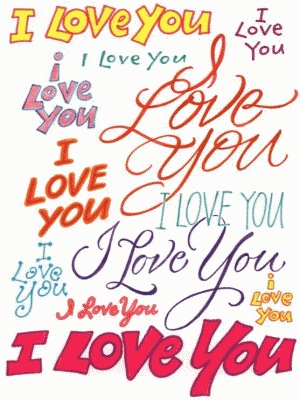 I Love You
I
Love
You
I Love You
i
Love
You
I
Love
You
I
LOVE
YOU
I LOVE YOU
I Love You
I
Love
You
i
Love
You
I Love You
I LOVE YOU